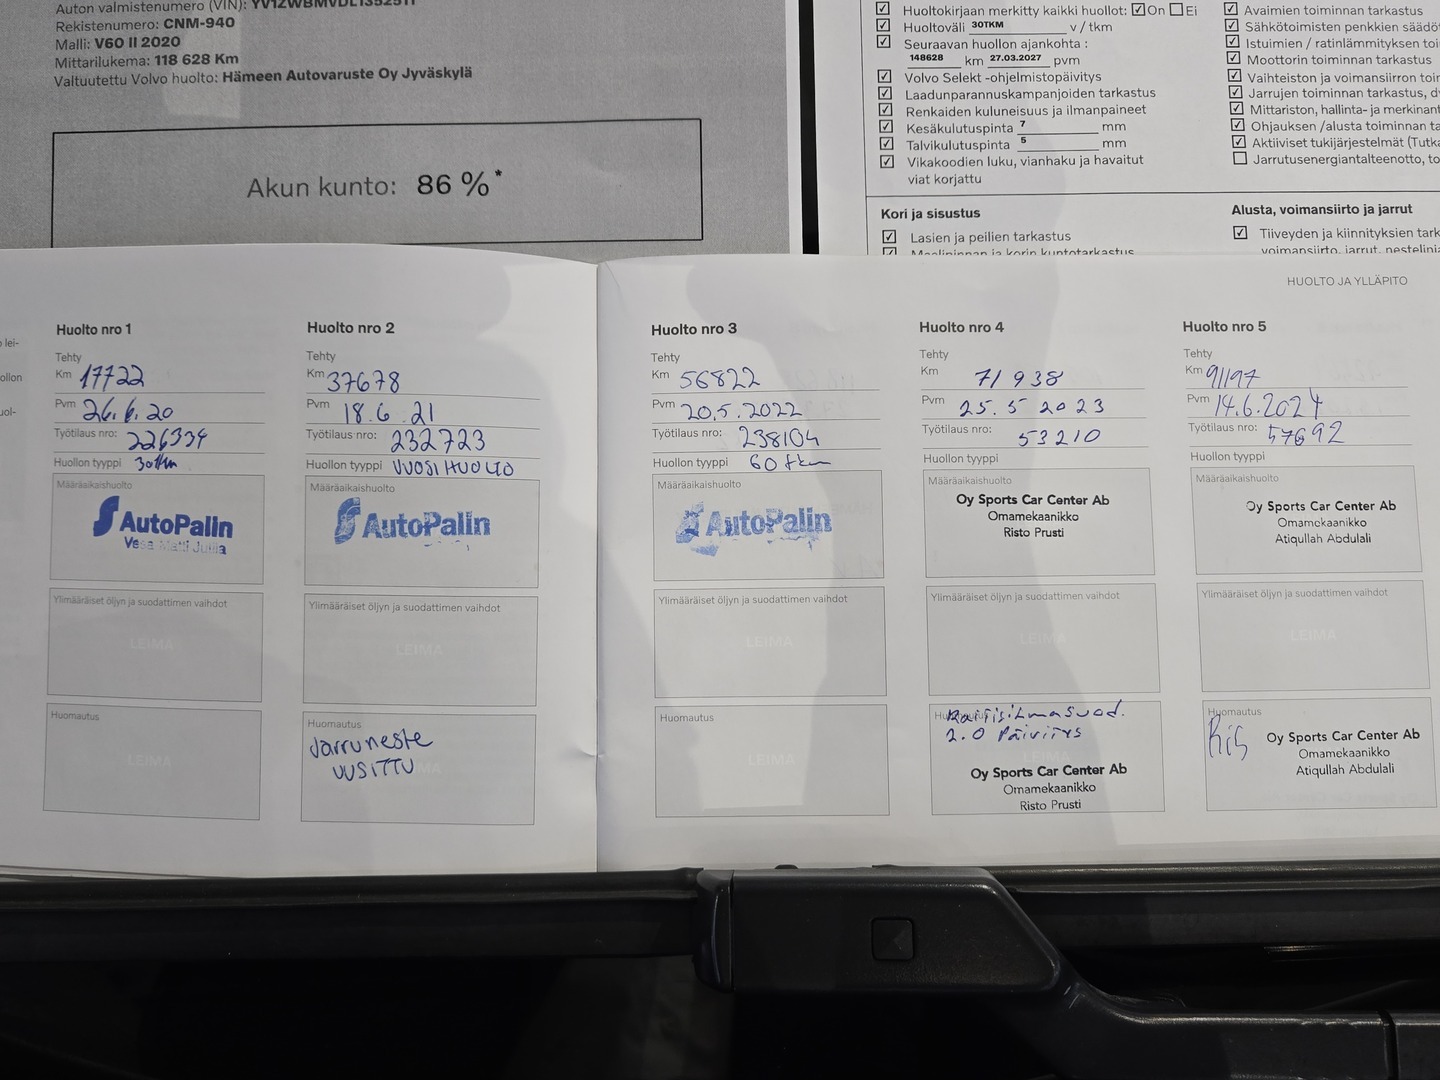 Auton valmistenumero (VIN):
Rekistenumero: CNM-940
Malli: V60 II 2020
Mittarilukema: 118 628 Km
Valtuutettu Volvo huolto: Hämeen Autovaruste Oy Jyväskylä
Akun kunto: 86 %*
Huoltokirjaan merkitty kaikki huollot: On Ei
Huoltoväli 30TKM v / tkm
Seuraavan huollon ajankohta :
148628 km 27.03.2027 pvm
Volvo Selekt -ohjelmistopäivitys
Laadunparannuskampanjoiden tarkastus
Renkaiden kuluneisuus ja ilmanpaineet
Kesäkulutuspinta 7 mm
Talvikulutuspinta 5 mm
Vikakoodien luku, vianhaku ja havaitut
viat korjattu
Avaimien toiminnan tarkastus
Sähkötoimisten penkkien säädö
Istuimien / ratinlämmityksen toi
Moottorin toiminnan tarkastus
Vaihteiston ja voimansiirron toir
Jarrujen toiminnan tarkastus, d
Mittariston, hallinta- ja merkinant
Ohjauksen /alusta toiminnan ta
Aktiiviset tukijärjestelmät (Tutka
Jarrutusenergiantalteenotto, to
Kori ja sisustus
Lasien ja peilien tarkastus
Maalipinnan ja korin kuntotarkastus
Alusta, voimansiirto ja jarrut
Tiiveyden ja kiinnityksien tark
voimansiirto, jarrut, nestelinja
HUOLTO JA YLLÄPITO
Huolto nro 1
Tehty
Km 17722
Pvm 26.6.20
Työtilaus nro: 226334
Huollon tyyppi 30tkm
Määräaikaishuolto
AutoPalin
Ylimääräiset öljyn ja suodattimen vaihdot
LEIMA
Huomautus
LEIMA
Huolto nro 2
Tehty
Km 37678
Pvm 18.6.21
Työtilaus nro: 232723
Huollon tyyppi VUOSIHUOLTO
Määräaikaishuolto
AutoPalin
Ylimääräiset öljyn ja suodattimen vaihdot
LEIMA
Huomautus
Jarruneste
UUSITTU
Huolto nro 3
Tehty
Km 56822
Pvm 20.5.2022
Työtilaus nro: 238104
Huollon tyyppi 60 tkm
Määräaikaishuolto
AutoPalin
Ylimääräiset öljyn ja suodattimen vaihdot
LEIMA
Huomautus
LEIMA
Huolto nro 4
Tehty
Km 71938
Pvm 25.5 2023
Työtilaus nro: 53210
Huollon tyyppi
Määräaikaishuolto
Oy Sports Car Center Ab
Omamekaanikko
Risto Prusti
Ylimääräiset öljyn ja suodattimen vaihdot
LEIMA
Raitisilmasuod.
2.0 Päivitys
Oy Sports Car Center Ab
Omamekaanikko
Risto Prusti
Huolto nro 5
Tehty
Km 91197
Pvm 14.6.2024
Työtilaus nro: 57692
Huollon tyyppi
Määräaikaishuolto
Oy Sports Car Center Ab
Omamekaanikko
Atiqullah Abdulali
Ylimääräiset öljyn ja suodattimen vaihdot
LEIMA
Huomautus
Oy Sports Car Center Ab
Omamekaanikko
Atiqullah Abdulali